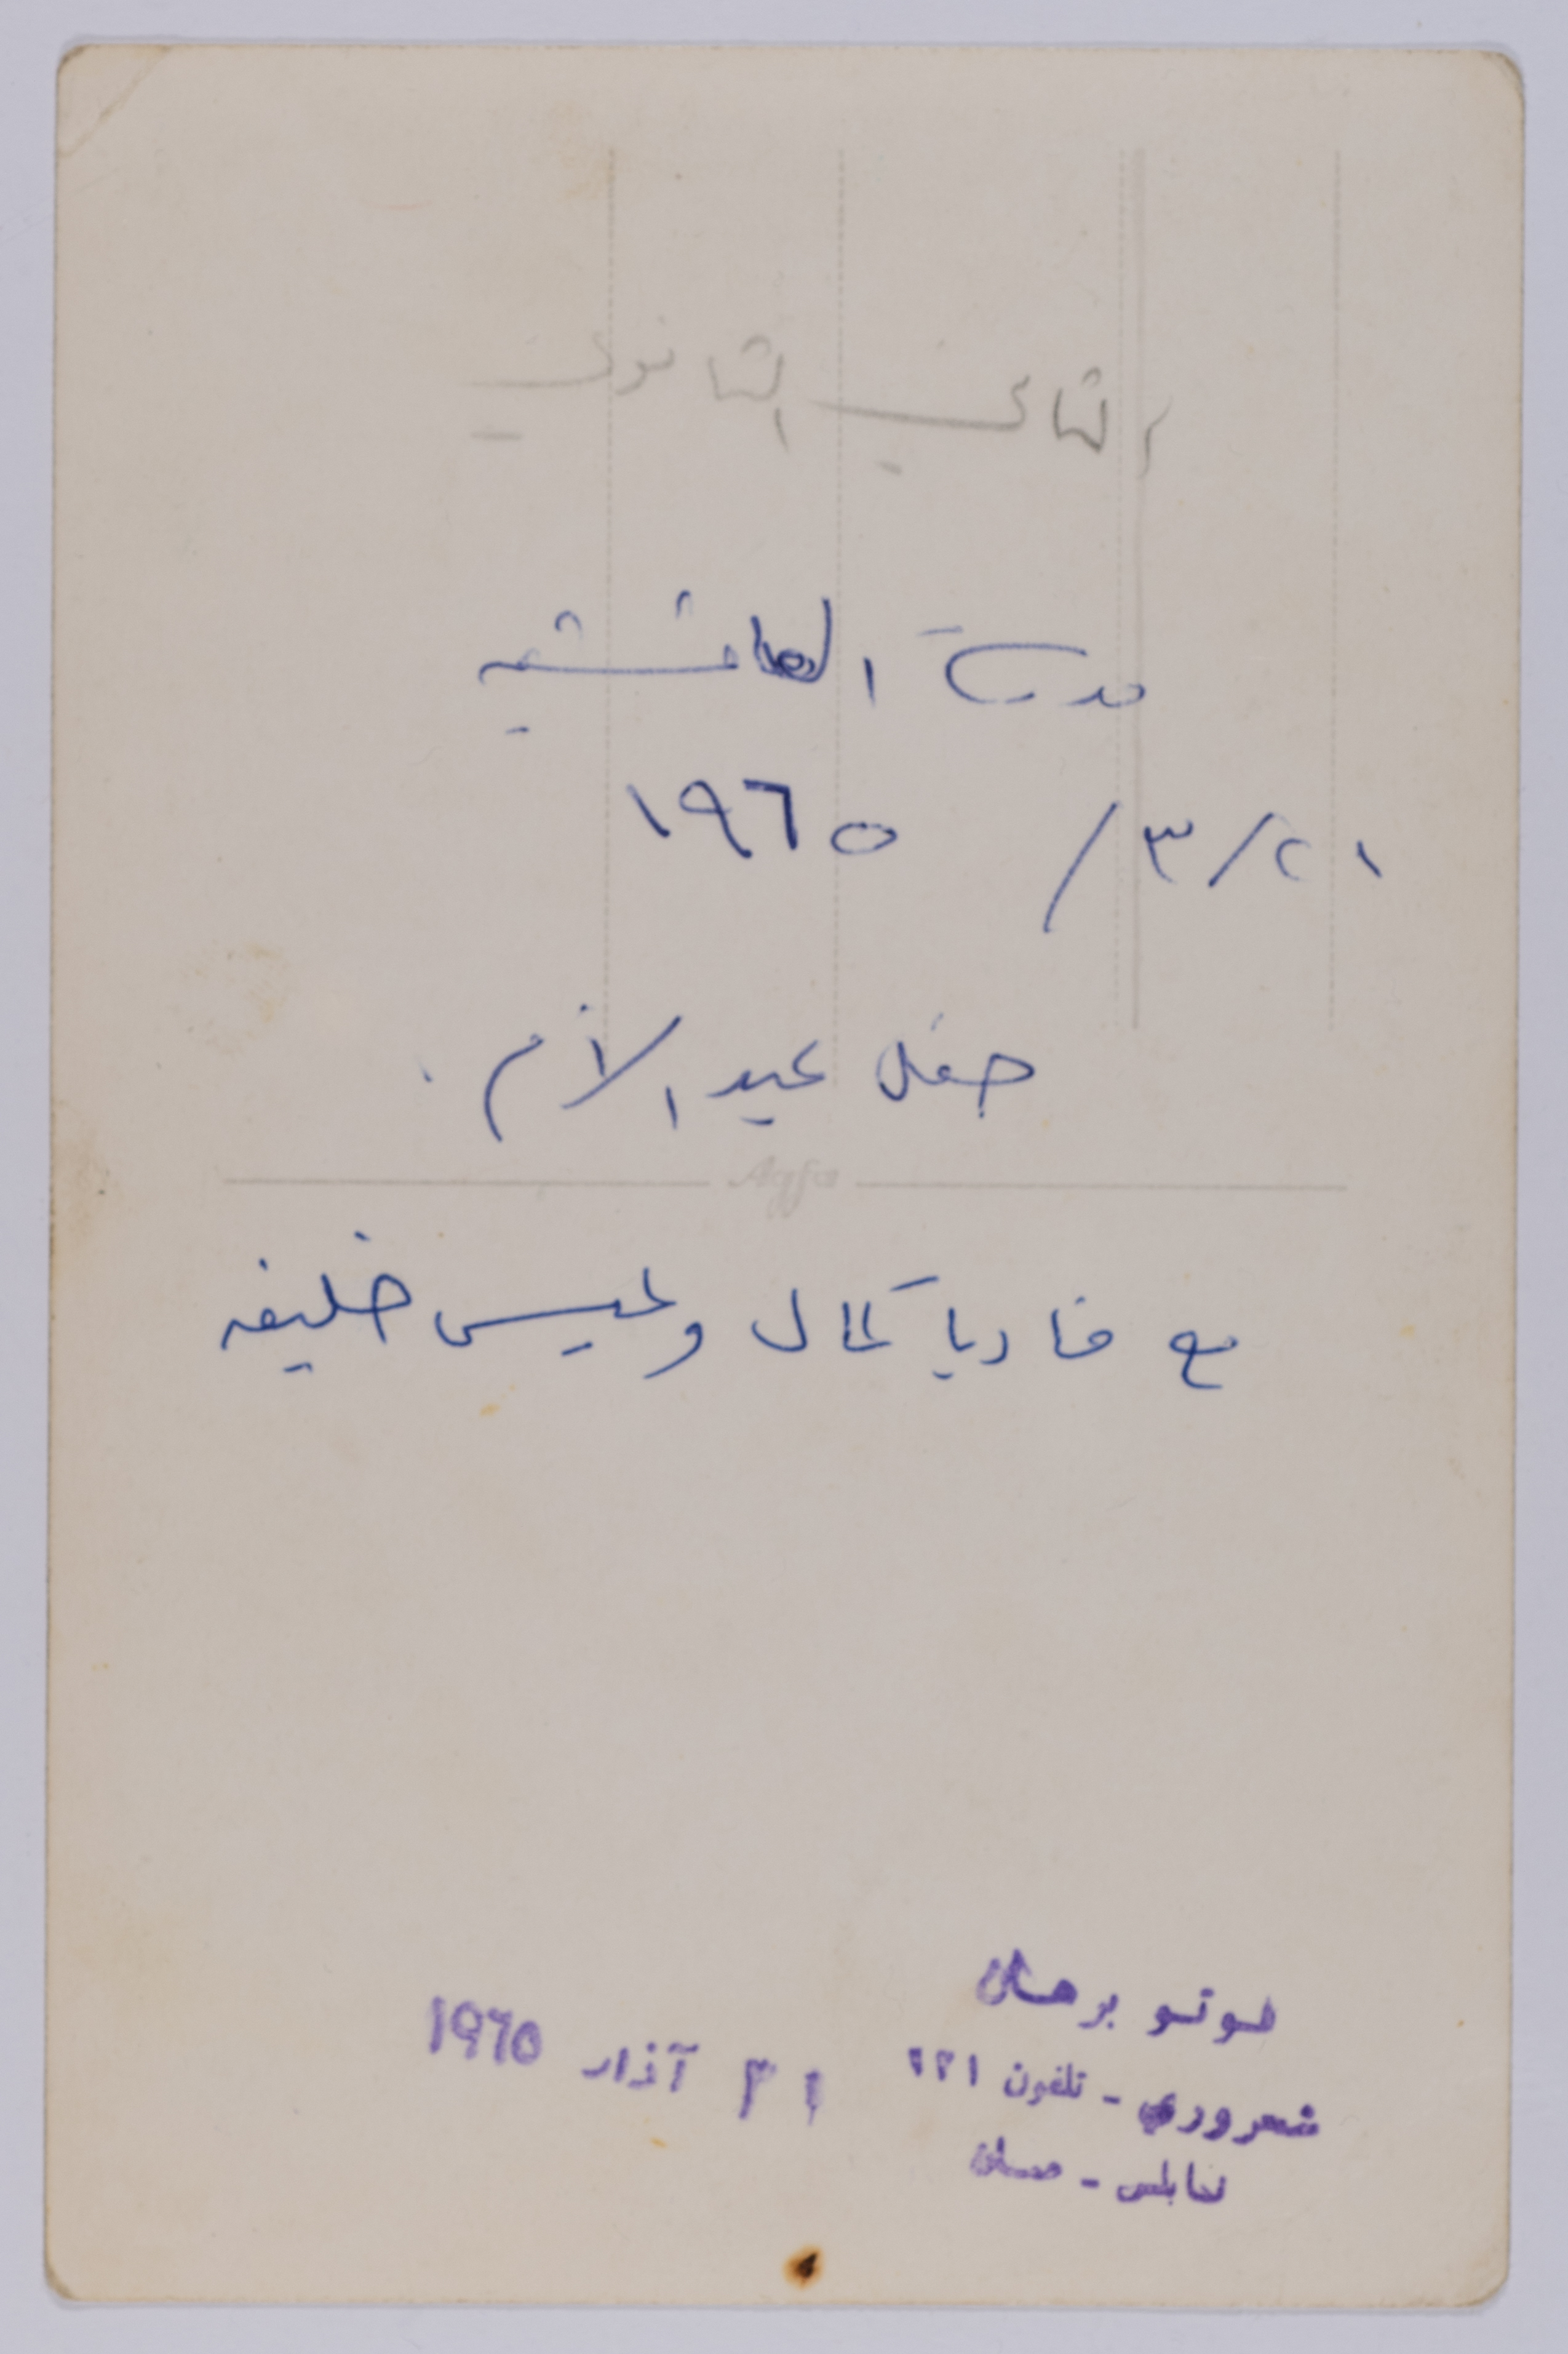 الثاني الثانوي
مدرسة العائشيه
٢١/ ٣/ ١٩٦٥
حفل عيد الأم.
Agfa
مع فاديا كمال وعيسى خليفه
فوتو برهان
شعروري - تلفون ٢٢١
نابلس -
٣١ آذار ١٩٦٥